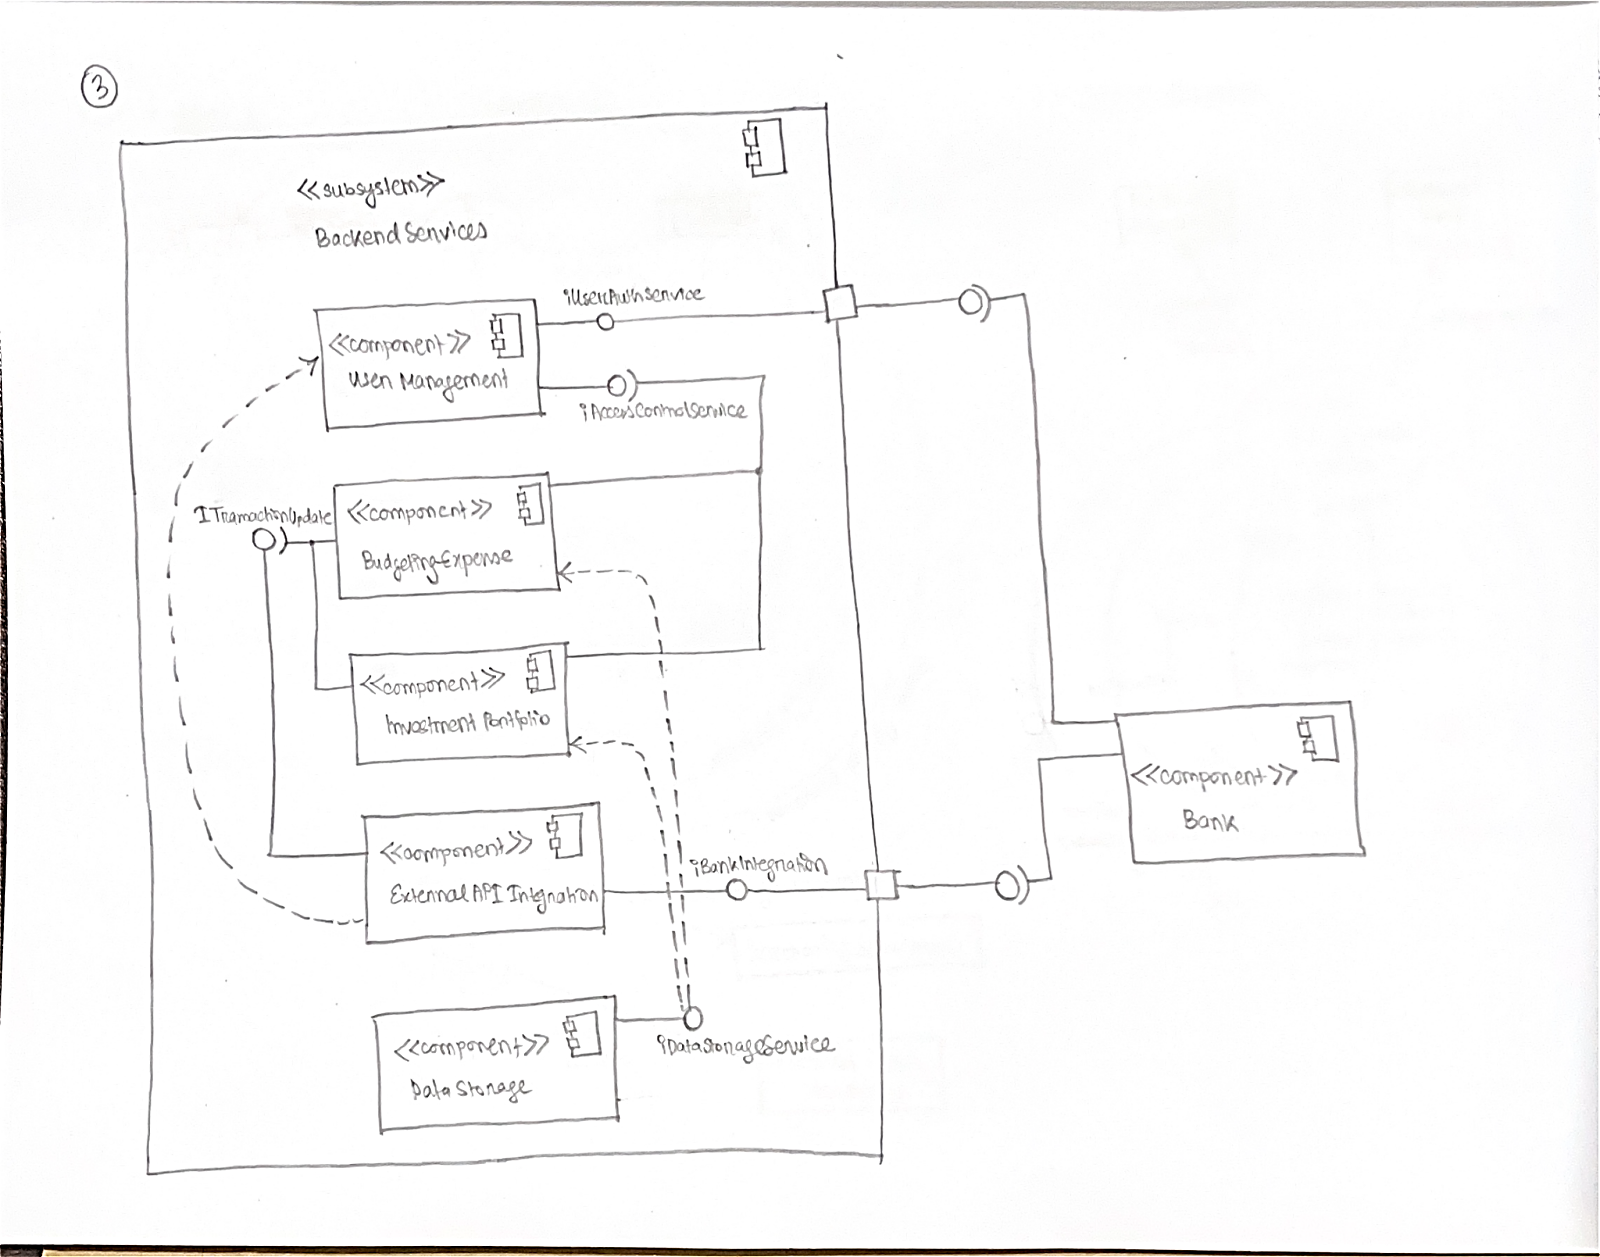 3
<<subsystem>>
Backend Services
iUserAuthService
<<component>>
User Management
iAccessControlService
ITransactionUpdate
<<component>>
Budgeting-Expense
<<component>>
Investment Portfolio
<<component>>
External API Integration
iBankIntegration
<<component>>
Bank
<<component>>
Data Storage
iDataStorageService